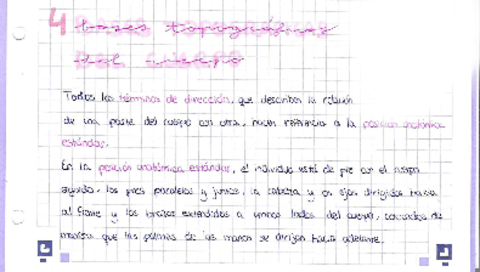 4 bases topográficas
del cuerpo
Todos los términos de dirección, que describen la relación
de una parte del cuerpo con otra, hacen referencia a la posición anatómica
estándar.
En la posición anatómica estándar, el individuo está de pie con el cuerpo
erguido, los pies paralelos y juntos, la cabeza y os ojos dirigidos hacia
al frente y los brazos extendidos a ambos lados del cuerpo, colocados de
manera que las palmas de las manos se dirijan hacia adelante.